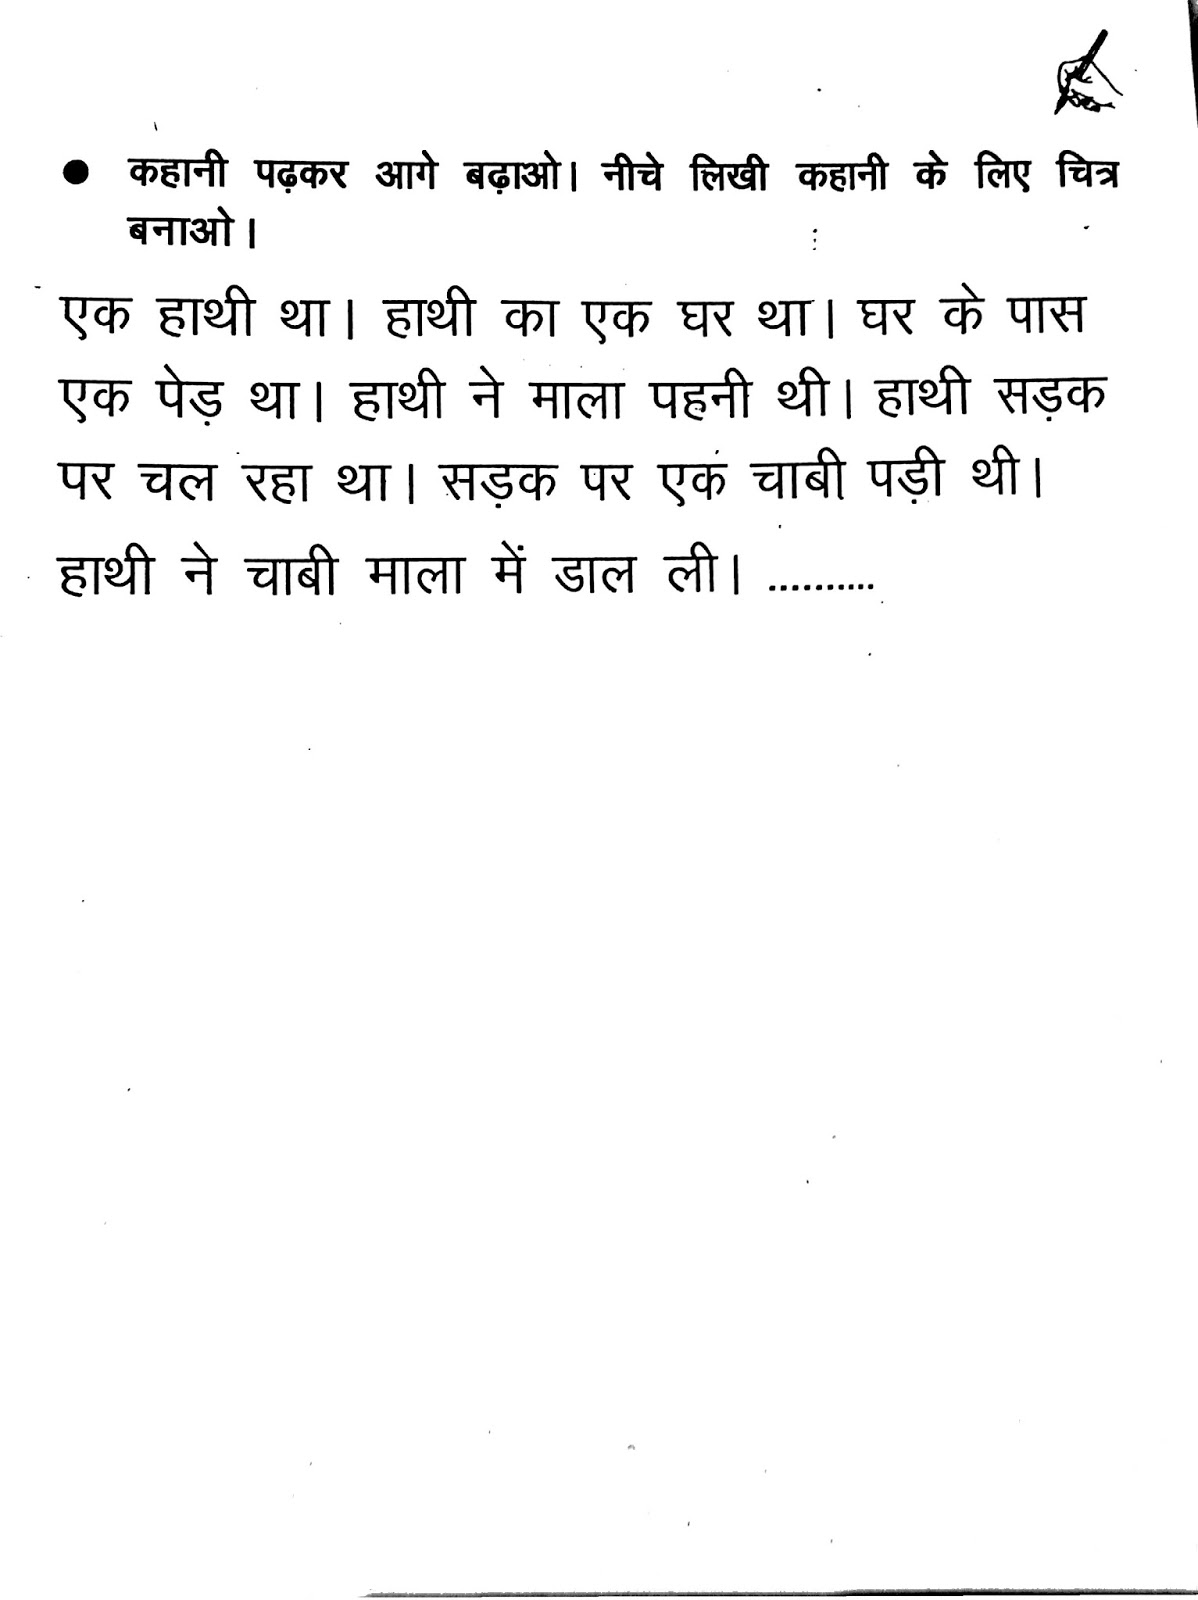 ● कहानी पढ़कर आगे बढ़ाओ। नीचे लिखी कहानी के लिए चित्र
बनाओ।
एक हाथी था। हाथी का एक घर था। घर के पास
एक पेड़ था। हाथी ने माला पहनी थी। हाथी सड़क
पर चल रहा था। सड़क पर एक चाबी पड़ी थी।
हाथी ने चाबी माला में डाल ली। ..........